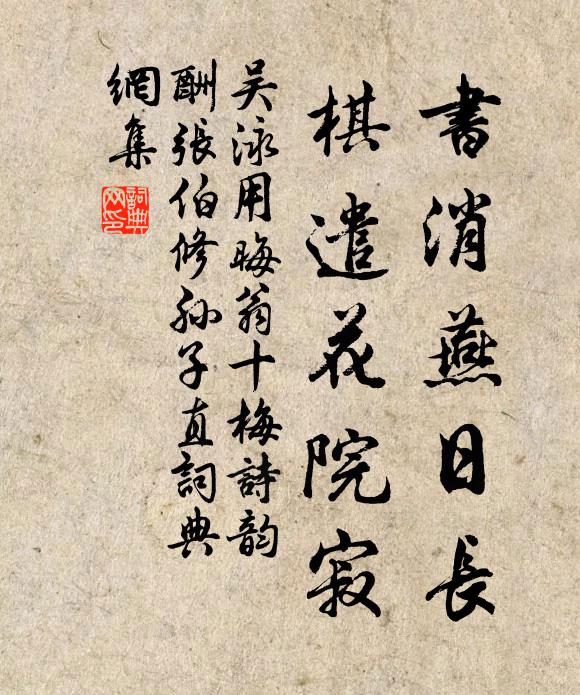 書消燕日長
棋遣花院寂
吴泳用晦翁十梅詩韵
酬張伯修孙子直詞典
網集
詞典
网印